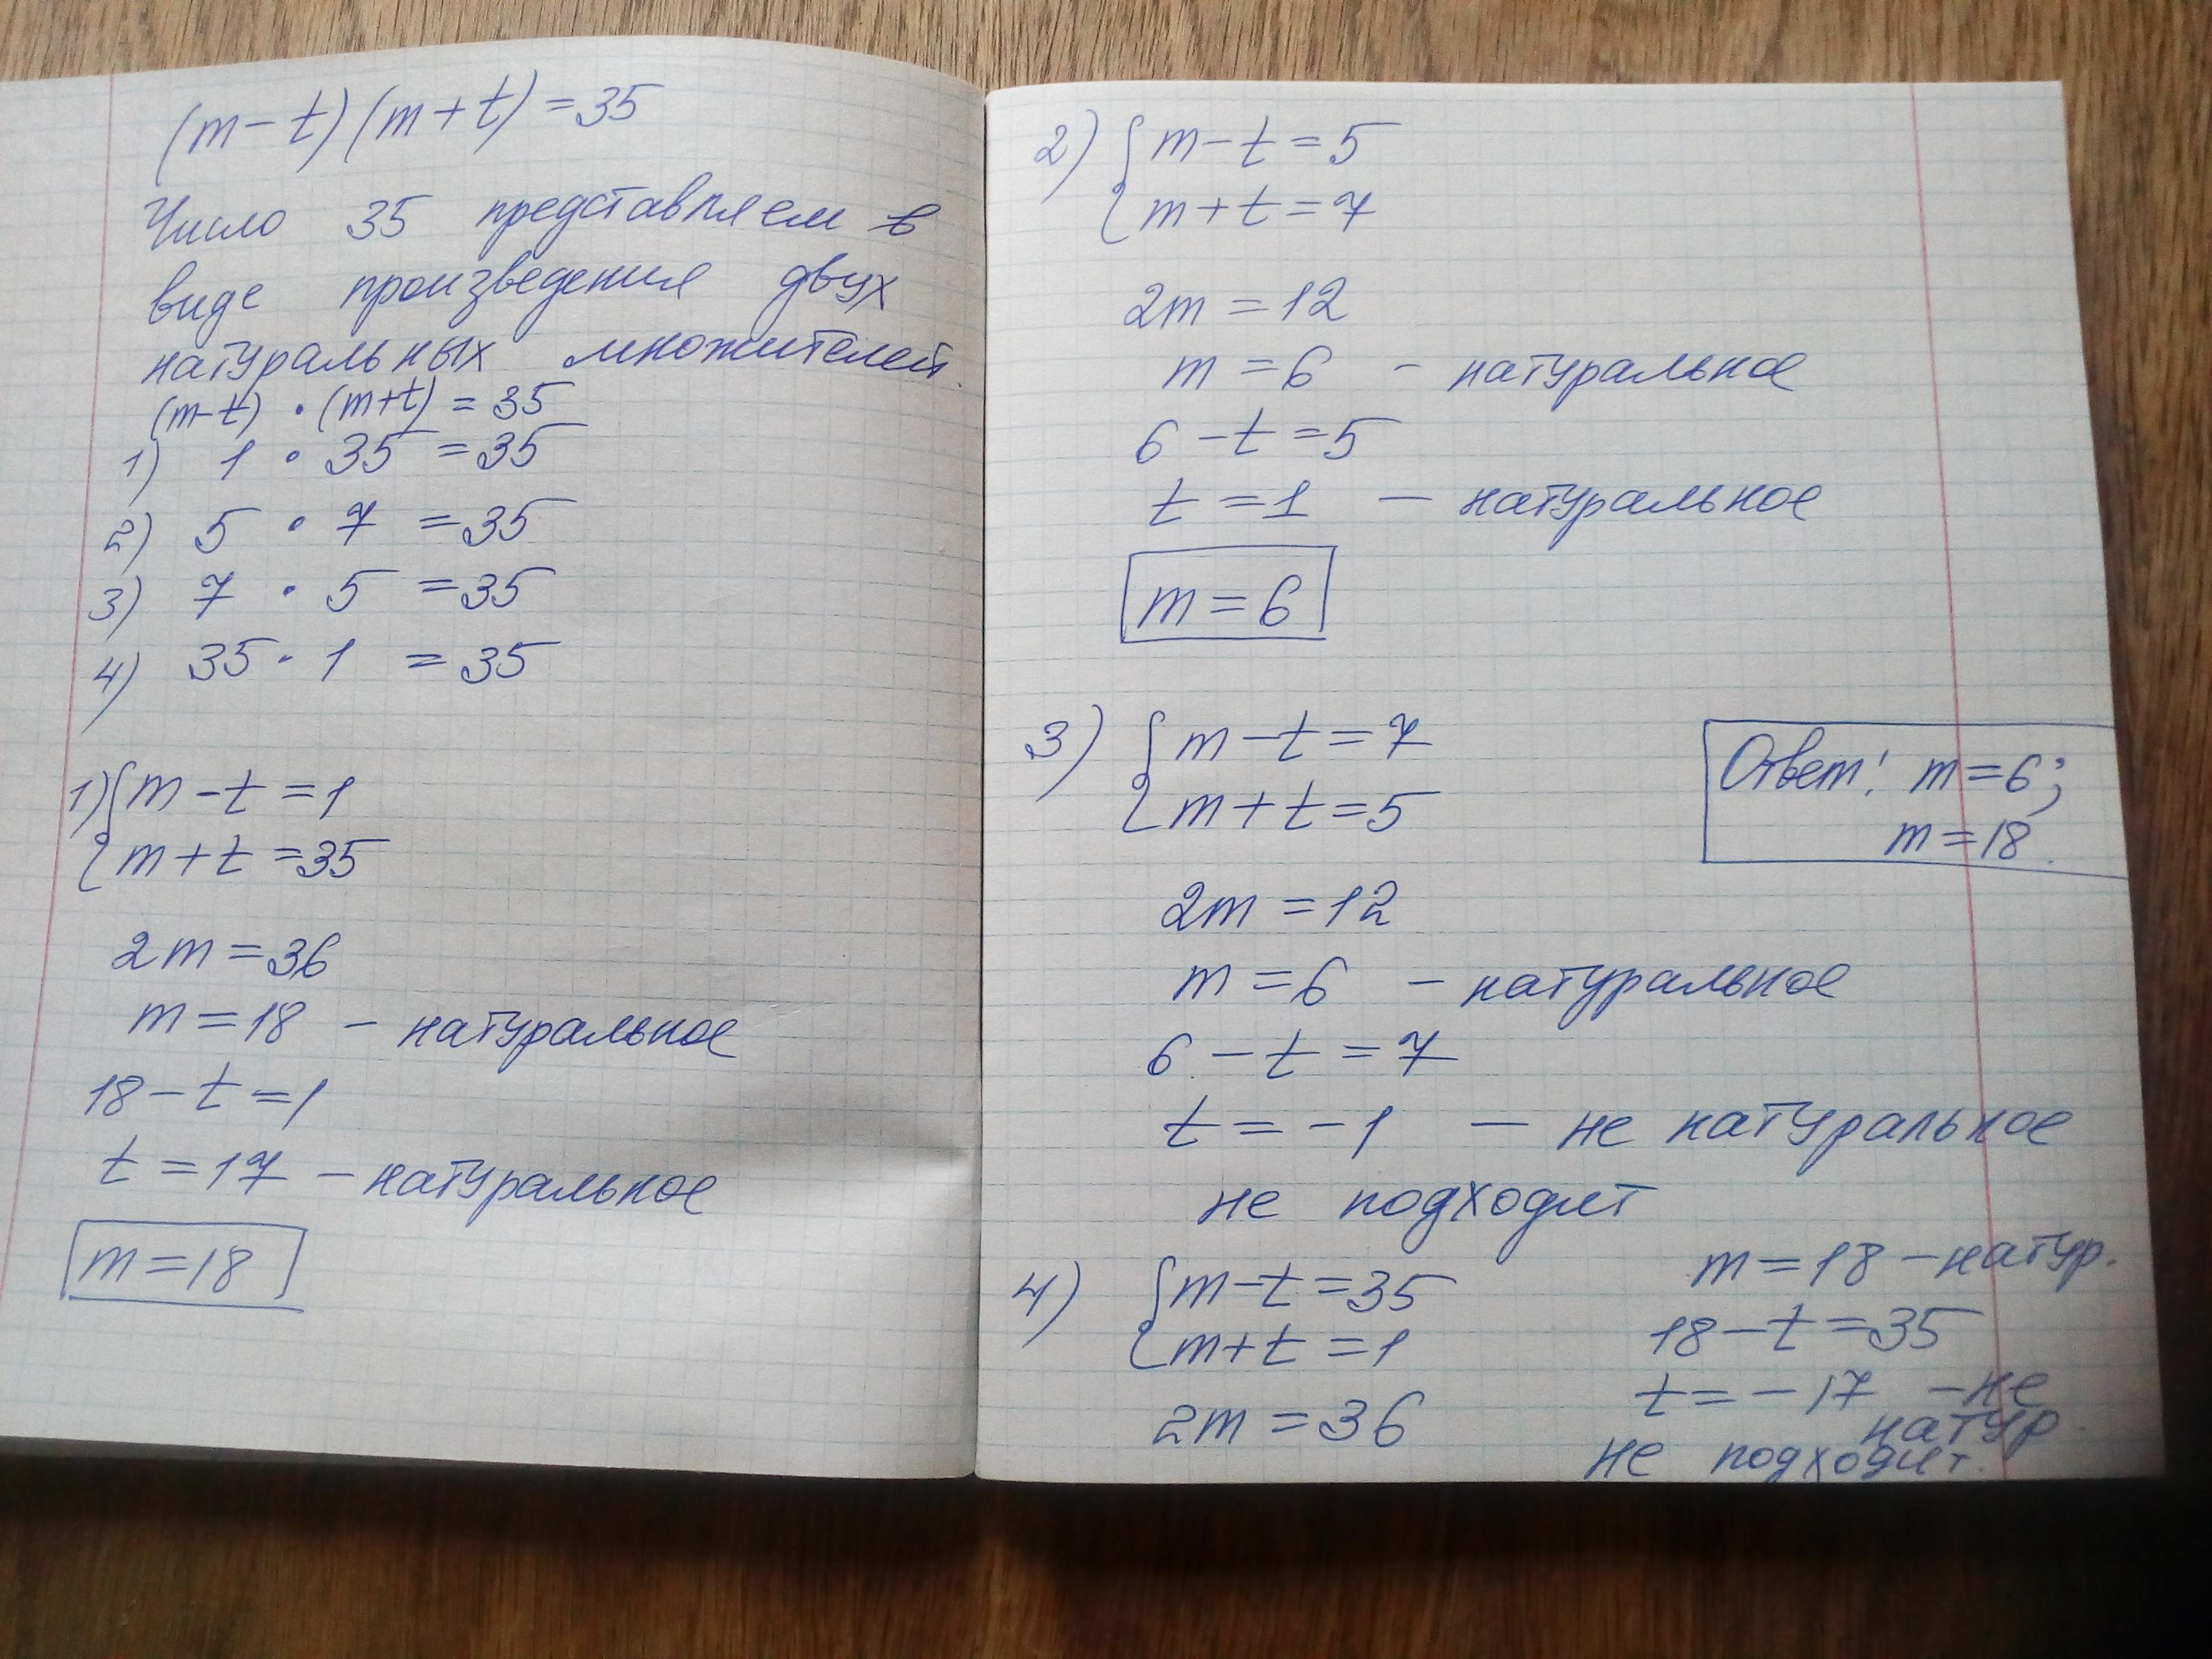 (m-t)(m+t)=35
Число 35 представляем в
виде произведения двух
натуральных множителей.
(m-t) · (m+t) = 35
1) 1 · 35 = 35
2) 5 · 7 = 35
3) 7 · 5 = 35
4) 35 · 1 = 35
1) { m-t=1
m+t=35
2m=36
m=18 - натуральное
18-t=1
t=17 - натуральное
m=18
2) { m-t=5
m+t=7
2m=12
m=6 - натуральное
6-t=5
t=1 - натуральное
m=6
3) { m-t=7
m+t=5
2m=12
m=6 - натуральное
6-t=7
t=-1 - не натуральное
не подходит
4) { m-t=35
m+t=1
2m=36
m=18 - натур.
18-t=35
t=-17 - не
натур.
не подходит.
Ответ: m=6;
m=18.